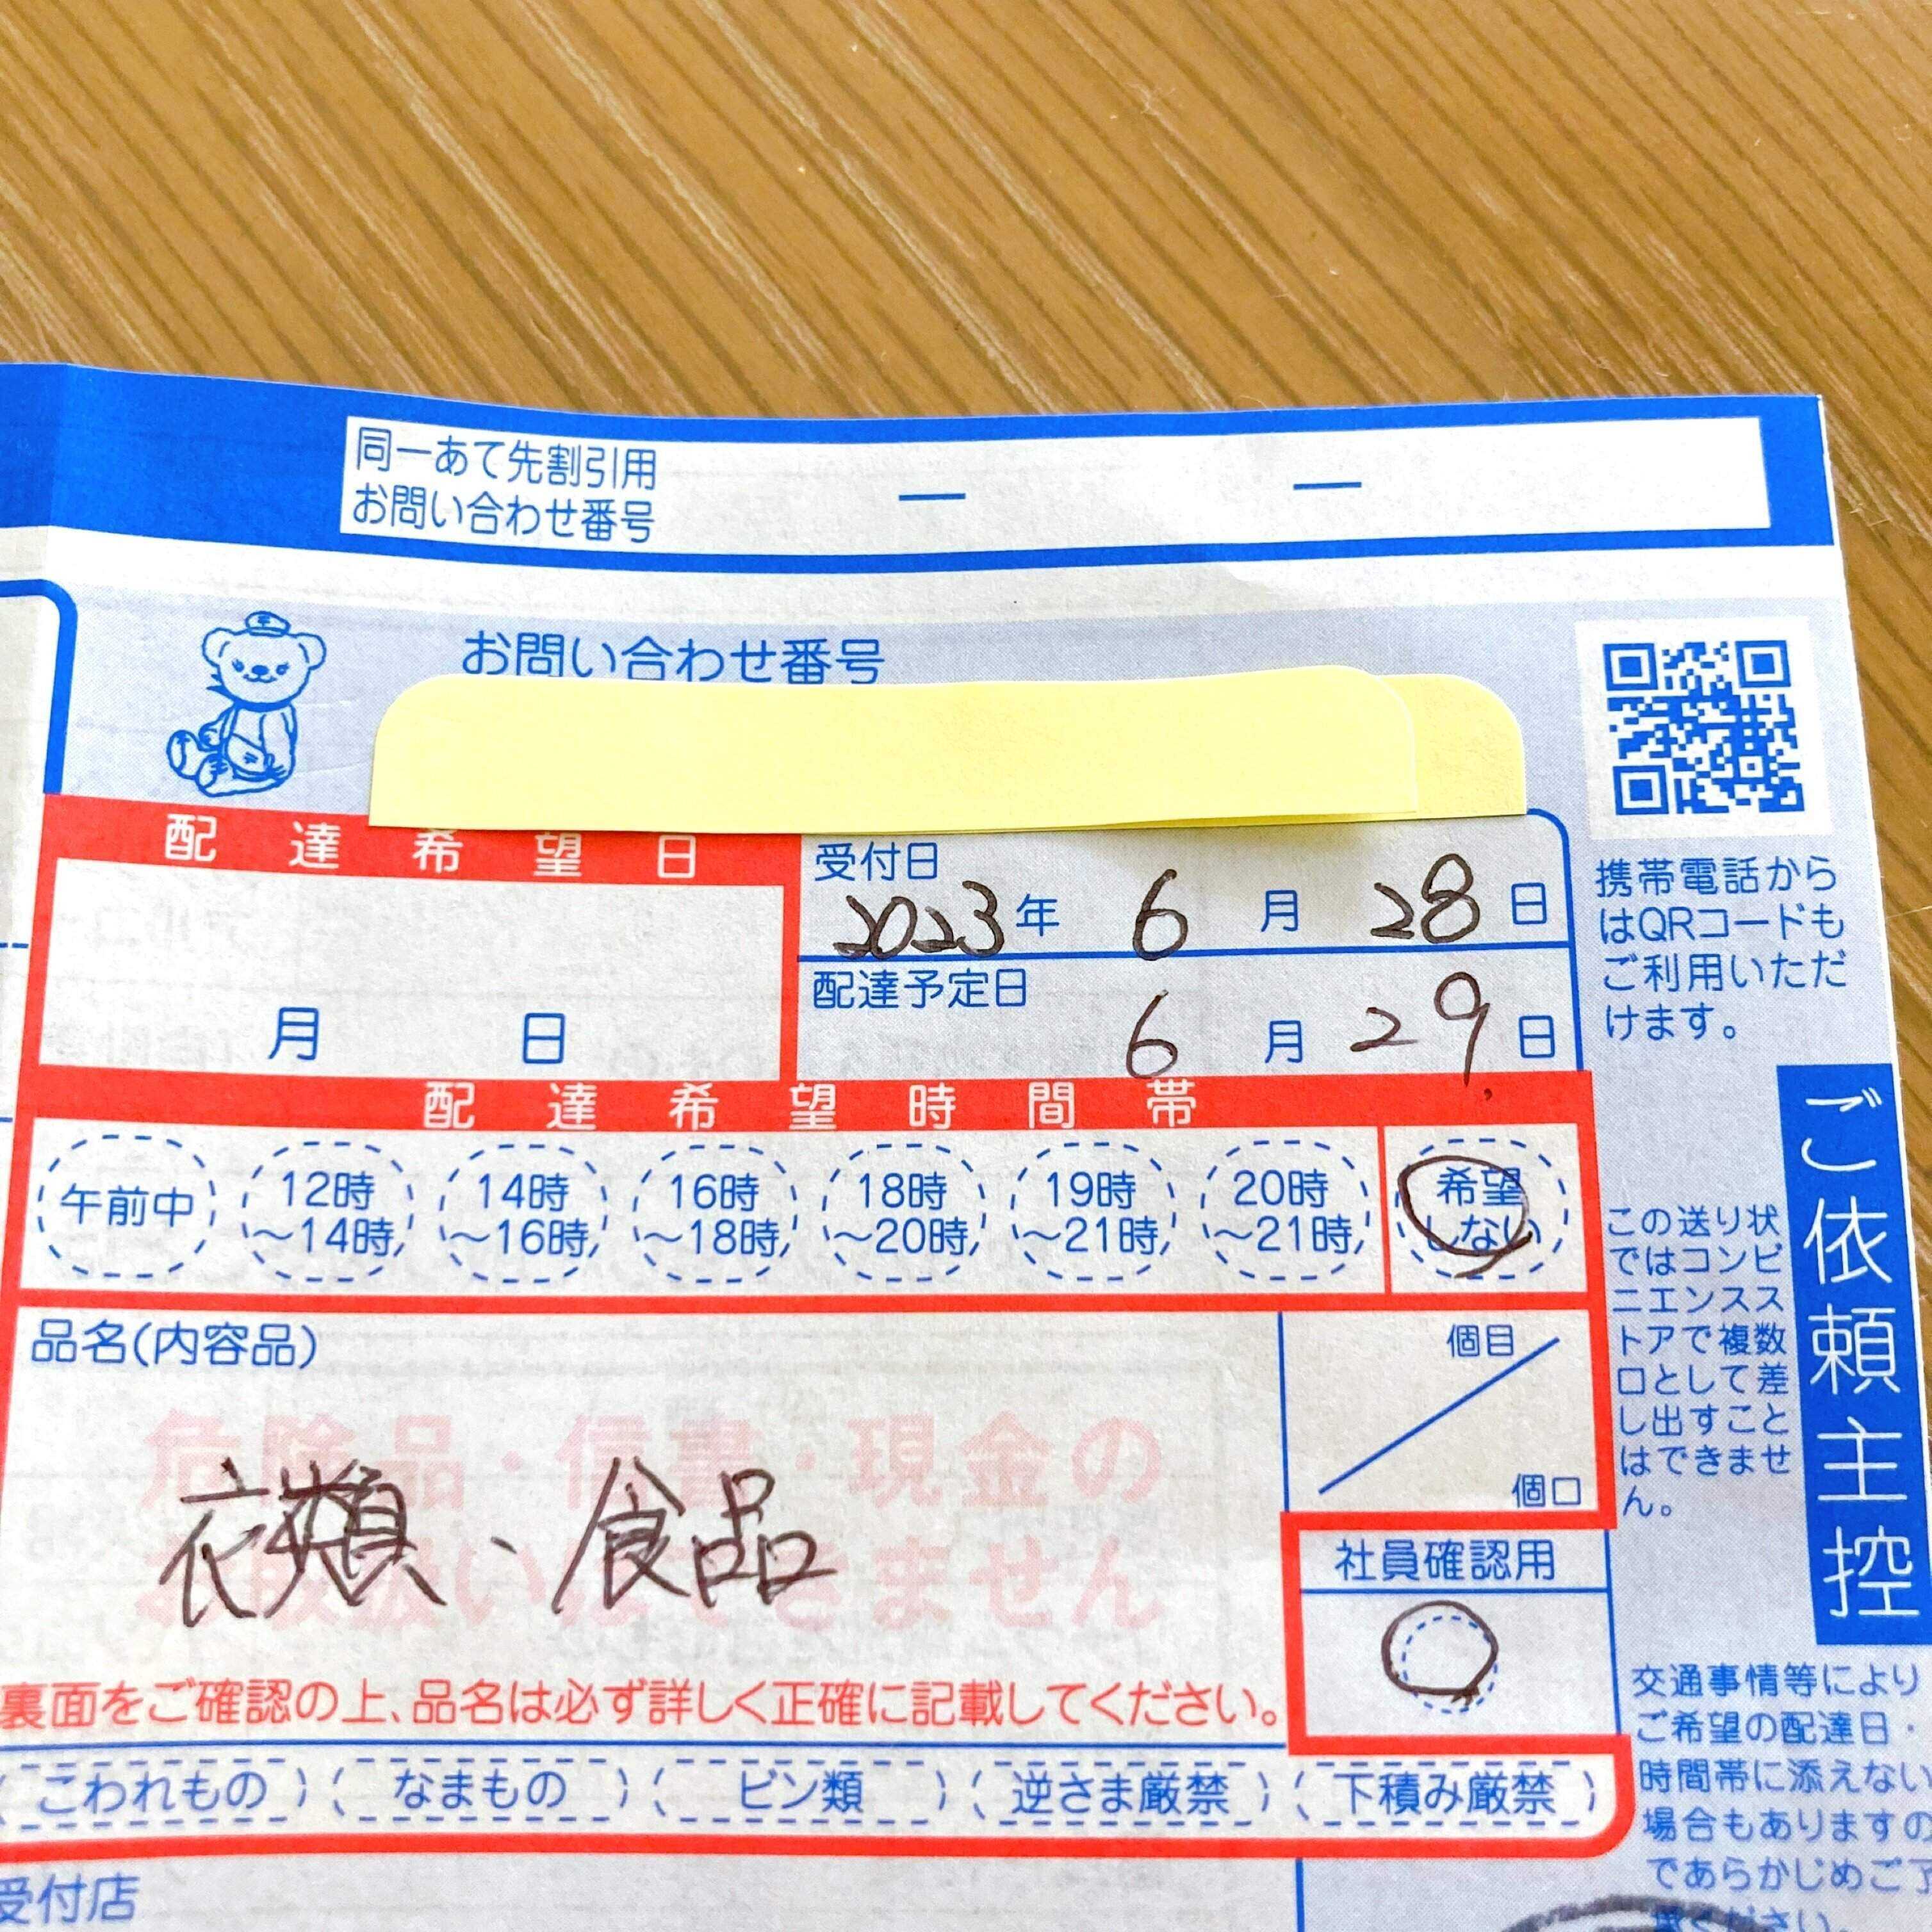 同一あて先割引用
お問い合わせ番号
お問い合わせ番号
携帯電話から
はQRコードも
ご利用いただ
けます。
配達希望日
月 日
受付日
2023年 6月 28日
配達予定日
6月 29日
配達希望時間帯
午前中
12時
～14時
14時
～16時
16時
～18時
18時
～20時
19時
～21時
20時
～21時
希望
しない
ご依頼主控
この送り状
ではコンビ
ニエンスス
トアで複数
口として差
し出すこと
はできませ
ん。
品名(内容品)
危険品・信書・現金の
お取扱いはできません
衣類、食品
個目
個口
社員確認用
裏面をご確認の上、品名は必ず詳しく正確に記載してください。
こわれもの なまもの ビン類 逆さま厳禁 下積み厳禁
交通事情等により
ご希望の配達日・
時間帯に添えない
場合もありますの
であらかじめご了
承ください
受付店